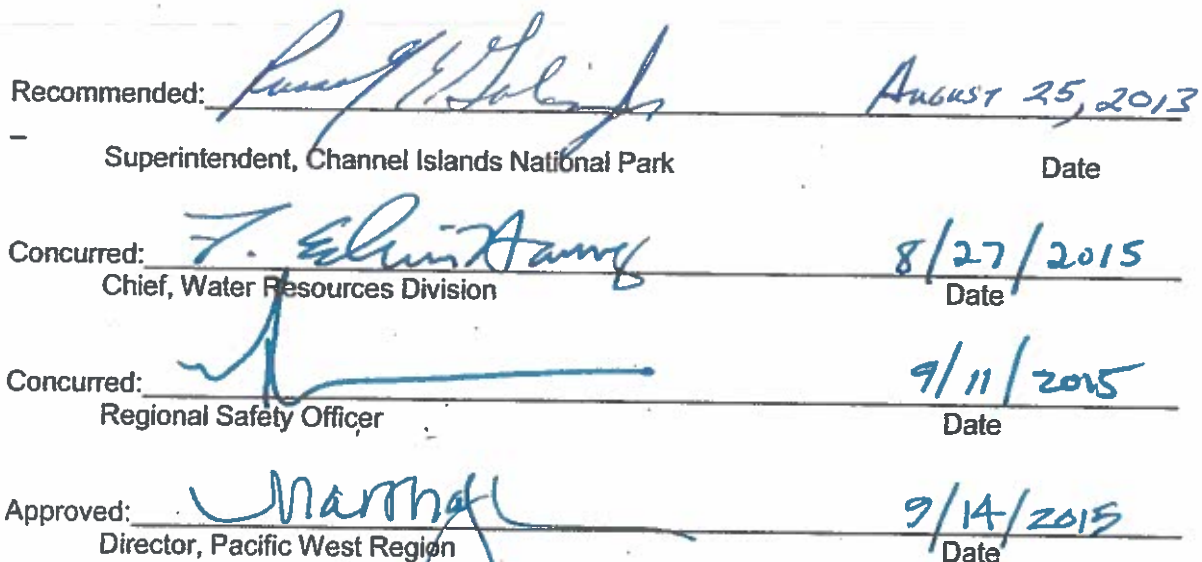 Recommended: Russell E Galipeau August 25, 2013
Superintendent, Channel Islands National Park Date
Concurred: F. Edwin Harvey 8/27/2015
Chief, Water Resources Division Date
Concurred: 9/11/2015
Regional Safety Officer Date
Approved: 9/14/2015
Director, Pacific West Region Date